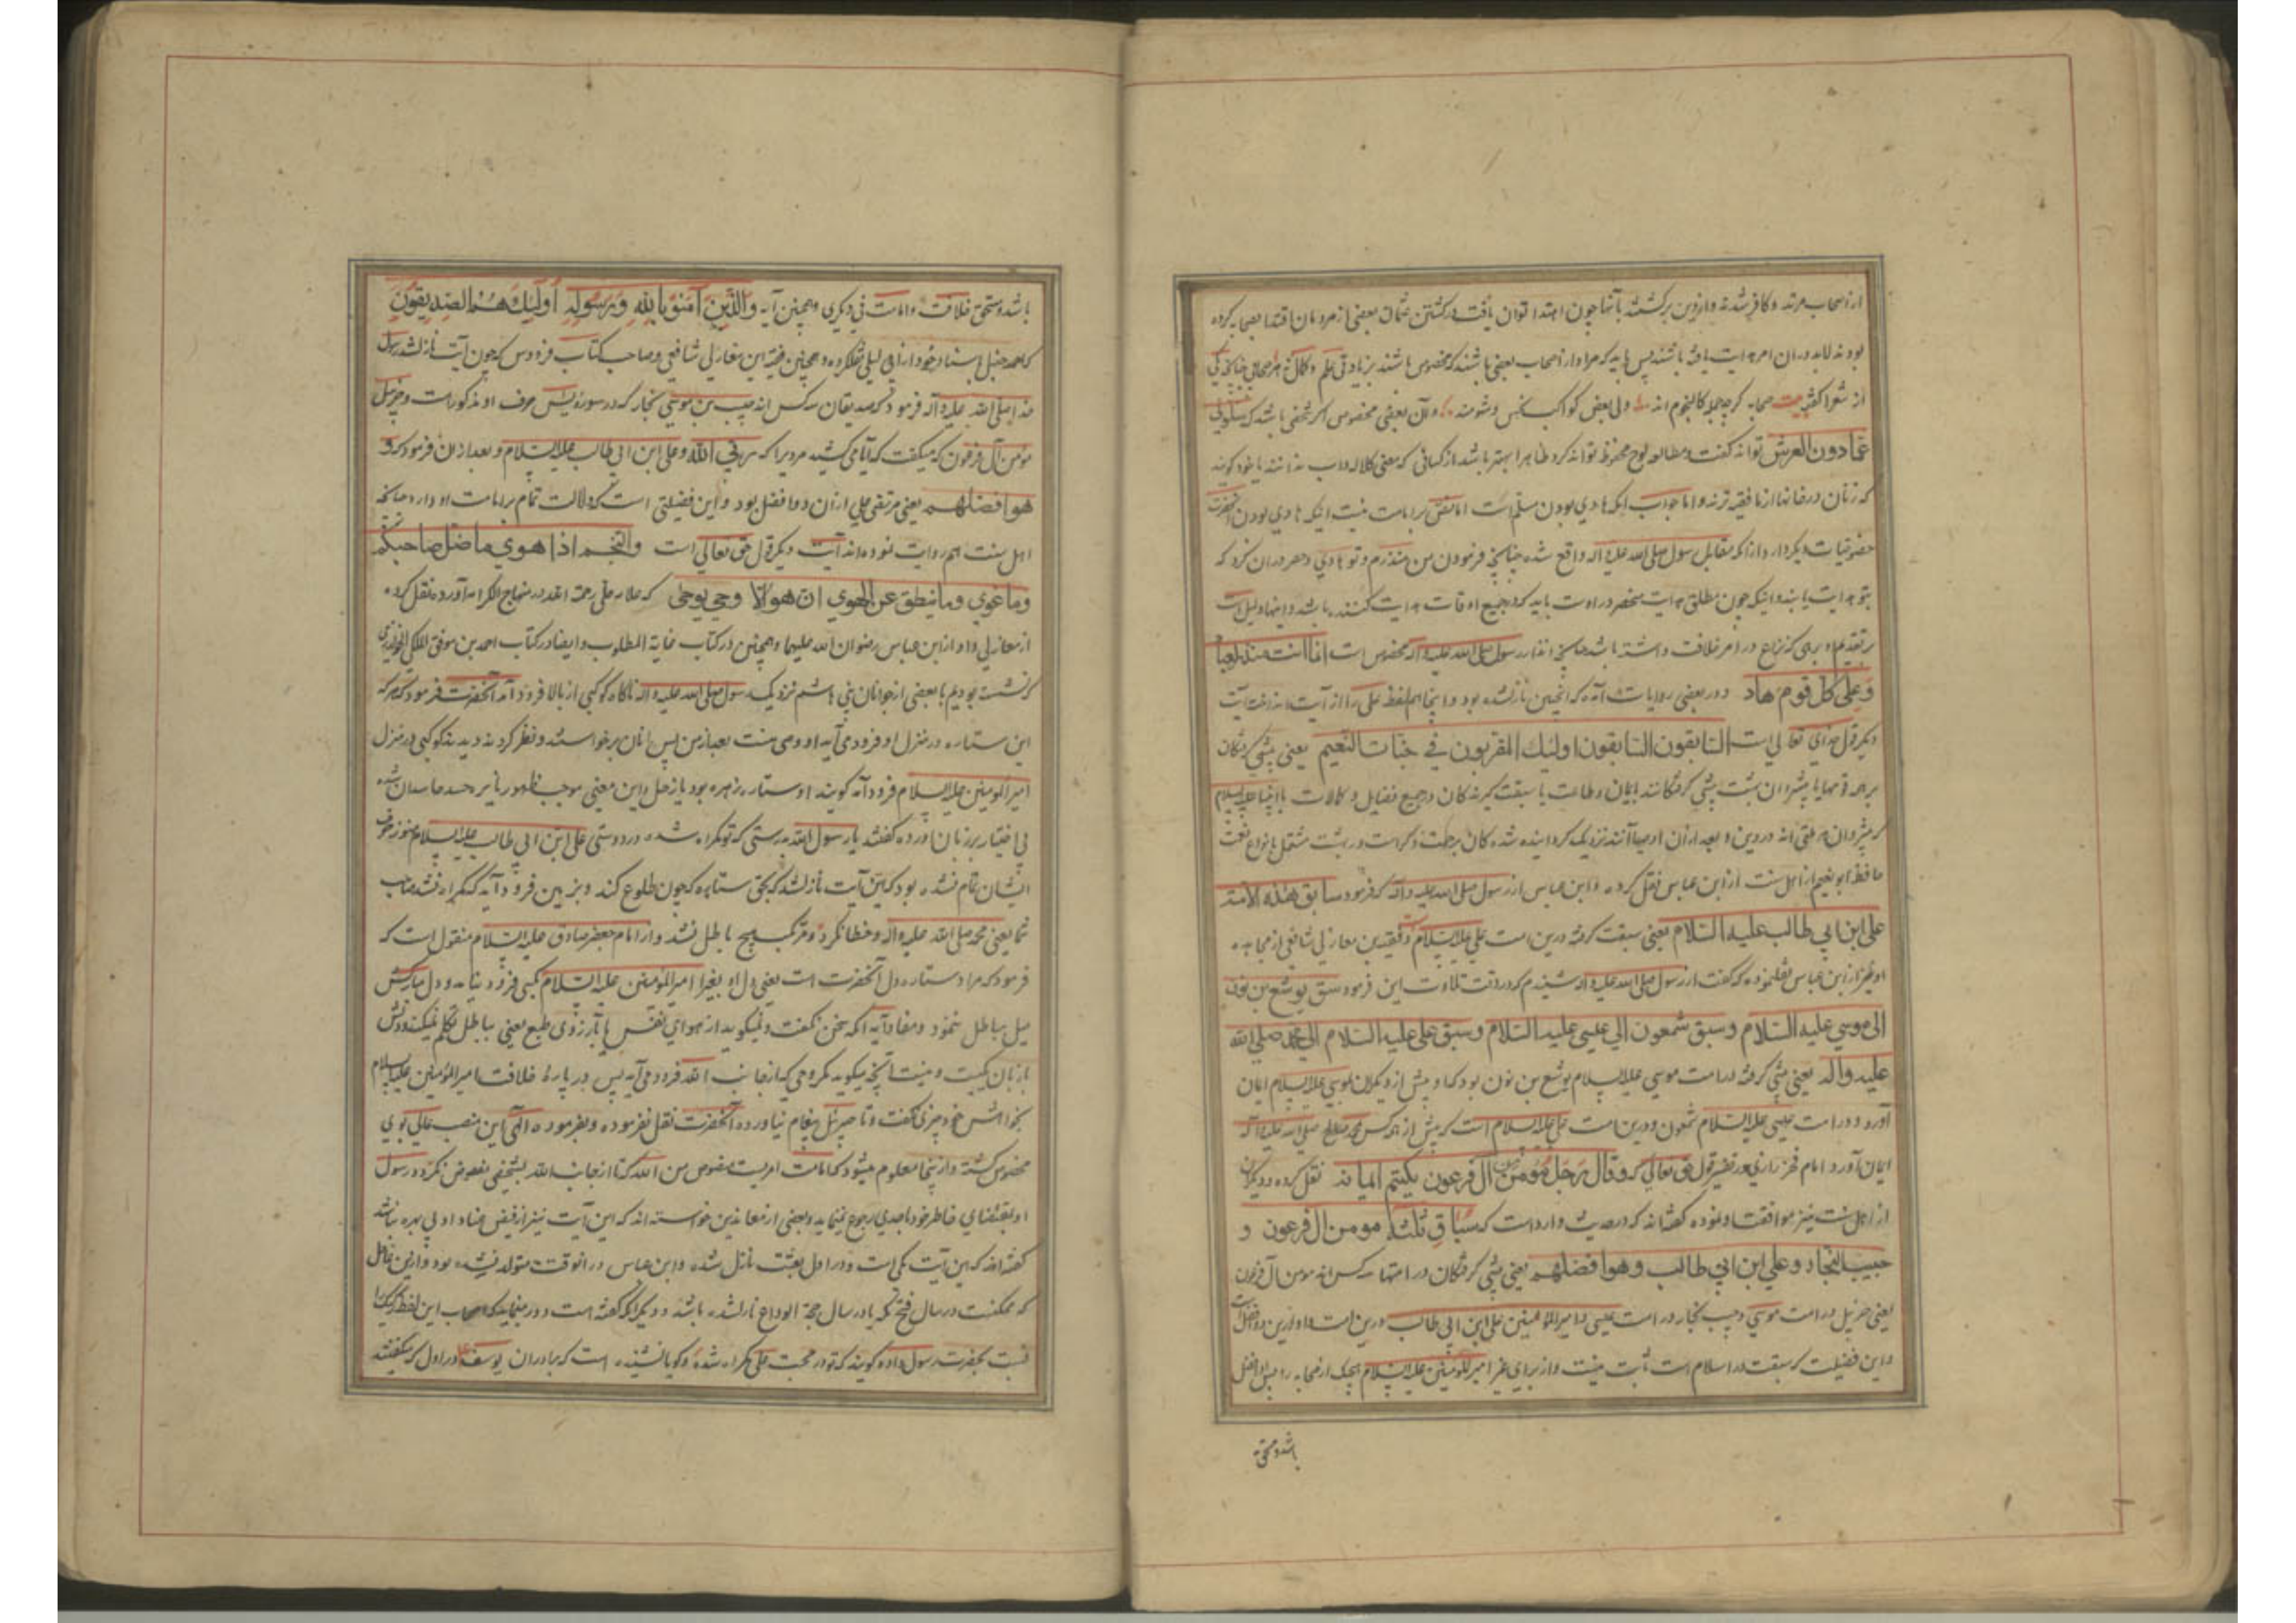 از اصحاب مرتد و کافر شدند و از دین برکشتند بآنها چون اهتدا توان یافت در کشتن عثمان بعضی از مردمان اقتدا بصحابه کرده
بودند لابد در ان امر هدایت یافته باشند پس باید که مراد از اصحاب بعضی باشند که مخصوص باشند بزیادتی علم و کمال نه هر صحابی چنانچه یکی
از شعرا گفته بیت صحابه کرچه جمله کالنجوم اند ولی بعض کواکب نحس و شومند و آن بعضی مخصوص اکر شخصی باشد که سلونی
عمادون العرش تواند کفت و مطالعه لوح محفوظ تواند کرد ظاهرا بهتر باشد از کسانی که معنی کلاله و اب ندانند یا خود کویند
که زنان در خانها از ما فقیه ترند و اما جواب انکه هادی بودن مسلم است اما نص بر امامت نیست اینکه هادی بودن آنحضرت
خصوصیات دیکر دارد از آنکه مقابل رسول صلی الله علیه و اله واقع شده چنانچه فرمودن من منذرم و تو هادی و حصر در ان کرد که
بتو هدایت یابند و اینکه چون مطلق هدایت منحصر در اوست باید که در جمیع اوقات هدایت کننده باشد و اینها دلیل است
بر تقدم او بر هر که نزاع در امر خلافت داشته باشد چنانچه انذار رسول صلی الله علیه و اله مخصوص است انما انت منذر لعباد
وعلی کل قوم هاد و در بعضی روایات آمده که انچنین نازلشده بود و اینجا هم لفظ علی را از آیت انداخته‌اند آیت
دیکر قول خدای تعالی است السابقون السابقون اولیك المقربون في جنات النعیم یعنی پیشی کرفتکان
حافظ ابو نعیم از اهل سنت از ابن عباس نقل کرده و ابن عباس از رسول صلی الله علیه و اله که فرمود سابق هذه الامة
علی ابن ابي طالب علیه السلام یعنی سبقت کرفته درین امت علی علیه السلام و فقیه بن مغازلی شافعی از مجاهد
او نیز از ابن عباس نقلنموده که کفت از رسول صلی الله علیه و اله شنیدم که در وقت تلاوت این فرمود سبق یوشع بن نون
الی موسي علیه السلام وسبق شمعون الي عیسی علیه السلام وسبق علی علیه السلام الی محمد صلی الله
علیه واله یعنی پیشی کرفته در امت موسی علیه السلام یوشع بن نون بود که او پیش از دیکران بموسی علیه السلام ایمان
آورد و در امت عیسی علیه السلام شمعون و درین امت علی علیه السلام است که پیش از همه کس بمحمد مصطفی صلی الله علیه و آله
ایمان آورد و امام فخر رازی در تفسیر قول حق تعالی که وقال رجل مؤمن من ال فرعون یکتم ایمانه نقل کرده و دیکران
از اهل سنت نیز موافقت او نموده کفته‌اند که در حدیث وارد است که سباق ثلثة مومن ال فرعون و
حبیب النجار وعلي ابن ابي طالب وهو افضلهم یعنی پیشی کرفتکان در امتها سه کس اند مومن آل فرعون
یعنی حزبیل در امت موسی و حبیب نجار در امت عیسی و امیر المؤمنین علی ابن ابی طالب درین امت و او ازین دو افضل است
و این فضیلت که سبقت در اسلام است ثابت نیست و از برای غیر امیر المومنین علیه السلام هیچیک از صحابه را پس او افضل
باشد و مستحق
باشد و مستحق خلافت و امامت نی دیکری و همچنین آیه والذین آمنوا بالله ورسوله اولیك هم الصدیقون
که احمد حنبل باسناد خود از ابی لیلی نقلکرده و همچنین فقیه ابن مغازلی شافعی و صاحب کتاب فردوس که چون آیت نازلشد رسول
خدا صلی الله علیه و آله فرمود که صدیقان سه کس اند حبیب بن موسی نجار که در سوره یس حرف او مذکور است و حزبیل
مؤمن آل فرعون که میکفت که آیا می کشید مردیرا که ربی الله و علی ابن ابی طالب علیه السلام و بعد از ان فرمود که و
هو افضلهم یعنی مرتضی علی از ان دو افضل بود و این فضیلتی است که دلالت تمام بر امامت او دارد چنانچه
اهل سنت هم روایت نموده‌اند آیت دیکر قول حق تعالی است والنجم اذا هوي ماضل صاحبکم
وما غوي وما ینطق عن الهوي ان هو الا وحي یوحی که علامه حلی رحمه الله در منهاج الکرامه آورده نقل کرده
از مغازلی و او از ابن عباس رضوان الله علیهما و همچنین در کتاب غایة المطلوب و ایضا در کتاب احمد بن موفق المکی الخوارزمی
که نشسته بودیم با بعضی از جوانان بنی هاشم نزدیک رسول صلی الله علیه و اله ناکاه کوکبی از بالا فرود آمد آنحضرت فرمود که هر که
این ستاره در منزل او فرود می‌آید او وصی منست بعد از من پس انان برخواستند و نظر کردند دیدند کوکبی در منزل
امیر المومنین علیه السلام فرود آمد کویند او ستاره زهره بود یا زحل و این معنی موجب ظهور نایره حسد حاسدان شده
بی اختیار بر زبان آورده کفتند یا رسول الله بدرستی که تو کمراه شده در دوستی علی ابن ابی طالب علیه السلام هنوز حرف
ایشان تمام نشده بود که این آیت نازلشد که بحق ستاره که چون طلوع کند و بزمین فرود آید که کمراه نشد صاحب
شما یعنی محمد صلی الله علیه و اله و خطا نکرد و مرتکب هیچ باطل نشد و از امام جعفر صادق علیه السلام منقول است که
فرمود که مراد ستاره دل آنحضرت است یعنی دل او بغیر از امیر المؤمنین علیه السلام بکسی فرود نیامد و دل مبارکش
میل بباطل ننمود و مفاد آیه آنکه سخن نکفت و نمیکوید از هوای نفس یا بآرزوی طبع یعنی بباطل تکلم نمیکند و دلش
با زبان یکیست و نیست آنچه میکوید مکر وحی که از جانب الله فرود می‌آید پس در بارۀ خلافت امیر المؤمنین علیه السلام
بخواهش خود چیزی نکفت و تا جبرئیل پیغام نیاورده آنحضرت نقل نفرموده و بفرموده الهی این منصب عالی بوی
مخصوص کشته و از اینجا معلوم میشود که امامت امریست منصوص من الله که تا از جانب الله بشخصی مفوض نکردد رسول
او بمقتضای خاطر خود باحدی رجوع نمینماید و بعضی از معاندین خواسته‌اند که این آیت نیز از فیض عناد او بی بهره نباشد
کفته‌اند که این آیت مکی است و در اول بعثت نازل شده و ابن عباس در انوقت متولد نشده بود و ازین غافل
که ممکنست در سال فتح مکه یا در سال حجة الوداع نازلشده باشد و دیکر آنکه کفته است و دور مینماید که اصحاب این لفظ رکیک را
نسبت بحضرت رسول داده کویند که تو در محبت علی کمراه شده و کویا نشنیده است که برادران یوسف در اول که میکفتند